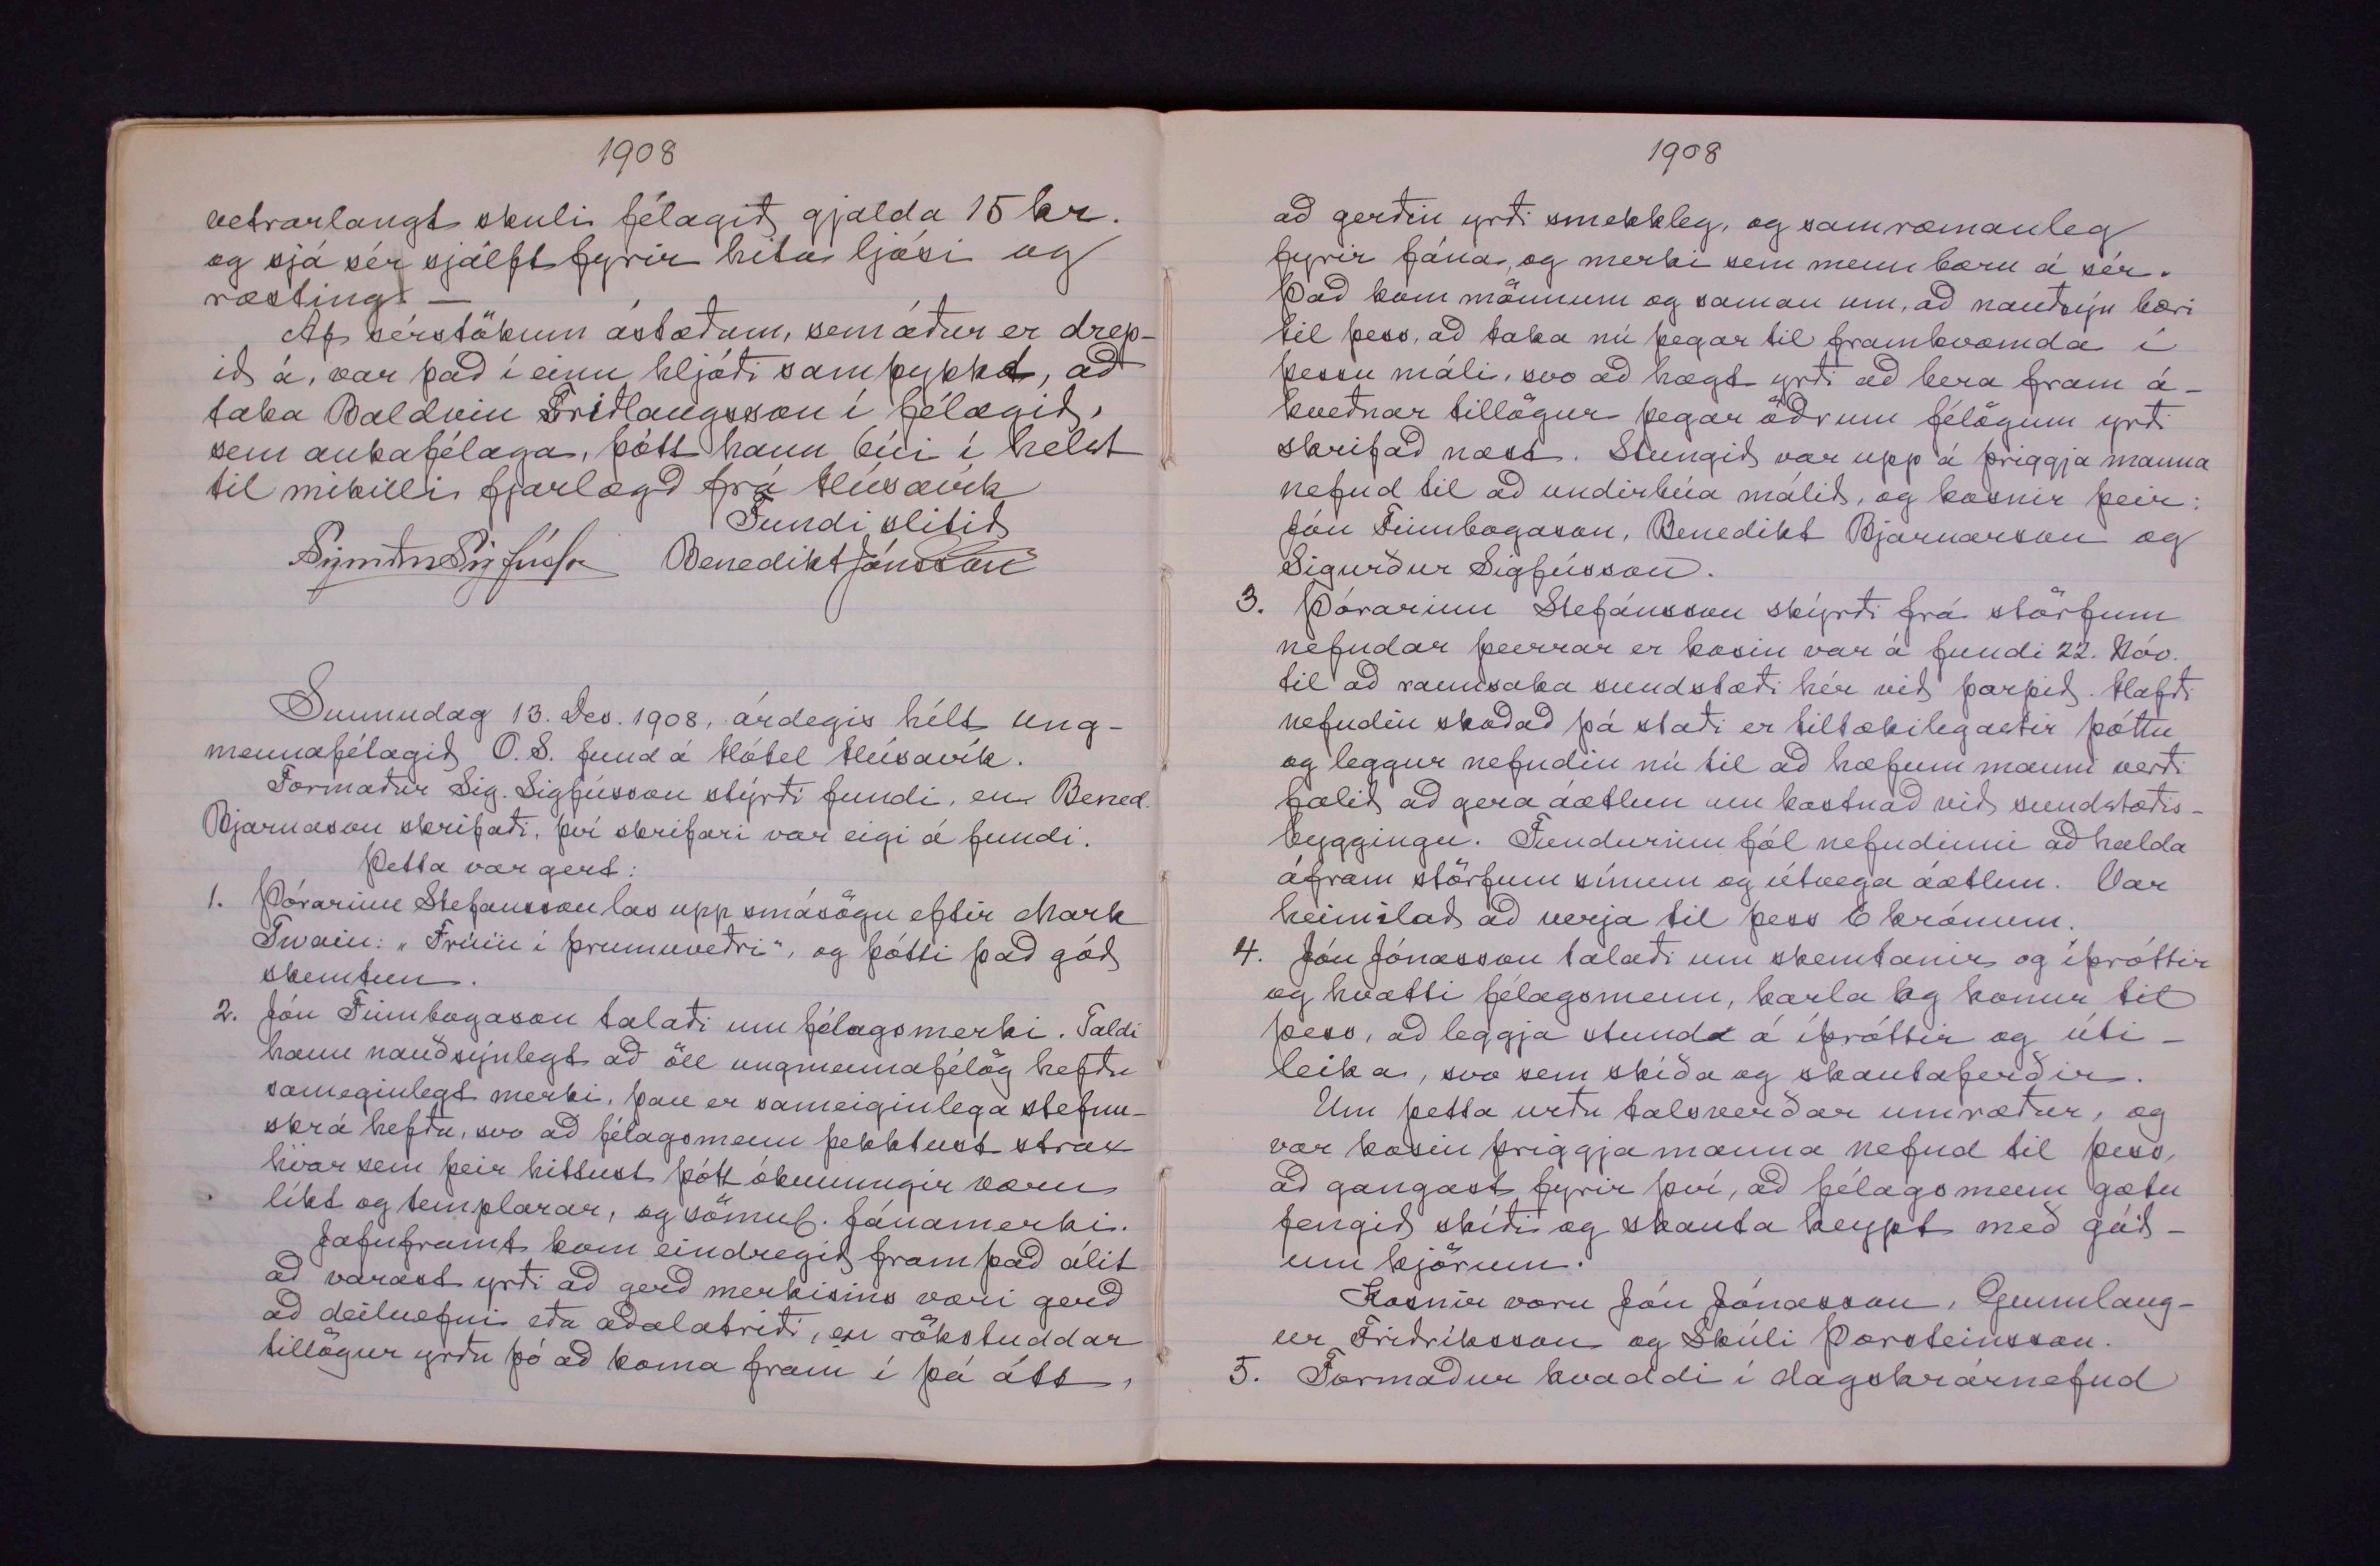 1908
vetrarlangt skuli félagið gjalda 15 kr.
og sjá sér sjálft fyrir hita ljósi og
ræsting. —
Af sérstökum ástæðum, sem áður er drep-
ið á, var það í einu hljóði samþykkt, að
taka Baldvin Friðlaugsson í félagið,
sem aukafélaga, þótt hann búi í helst
til mikilli fjarlægð frá Húsavík
Fundi slitið
Sigurður Sigfússon Benedikt Jónsson
Sunnudag 13. Des. 1908, árdegis hélt ung-
mennafélagið O.S. fund á Hótel Húsavík.
Formaður Sig. Sigfússon stýrði fundi, en Bened.
Bjarnason skrifaði, því skrifari var eigi á fundi.
Þetta var gert:
1. Þórarinn Stefansson las upp smásögu eftir Mark
Twain: „Frúin í þrumuveðri", og þótti það góð
skemtun.
2. Jón Finnbogason talaði um félagsmerki. Taldi
hann nauðsýnlegt að öll ungmennafélög hefðu
sameginlegt merki, þau er sameiginlega stefnu-
skrá hefðu, svo að félagsmenn þekktust strax
hvar sem þeir hittust þótt ókunnugir væru
líkt og templarar, og sömul. fánamerki.
Jafnframt kom eindregið fram það álit
að varast yrði að gerð merkisins væri gerð
að deiluefni eða aðalatriði, en rökstuddar
tillögur yrðu þó að koma fram í þá átt,
1908
að gerðin yrði smekkleg, og samræmanleg
fyrir fána, og merki sem menn bæru á sér.
Það kom mönnum og saman um, að nauðsýn bæri
til þess, að taka nú þegar til framkvæmda í
þessu máli, svo að hægt yrði að bera fram á-
kveðnar tillögur þegar öðrum félögum yrði
skrifað næst. Stungið var upp á þriggja manna
nefnd til að undirbúa málið, og kosnir þeir:
Jón Finnbogason, Benedikt Bjarnarson og
Sigurður Sigfússon.
3. Þórarinn Stefánsson skýrði frá störfum
nefndar þeirrar er kosin var á fundi 22. Nóv.
til að rannsaka sundstæði hér við þorpið. Hafði
nefndin skoðað þá staði er tiltækilegastir þóttu
og leggur nefndin nú til að hæfum manni verði
falið að gera áætlun um kostnað við sundstæðis-
byggingu. Fundurinn fól nefndinni að halda
áfram störfum sínum og útvega áætlun. Var
heimilað að verja til þess 6 krónum.
4. Jón Jónasson talaði um skemtanir og íþróttir
og hvatti félagsmenn, karla og konur til
þess, að leggja stund á íþróttir og úti-
leika, svo sem skíða og skautaferðir.
Um þetta urðu talsverðar umræður, og
var kosin þriggja manna nefnd til þess,
að gangast fyrir því, að félagsmenn gætu
fengið skíði og skauta keypt með góð-
um kjörum.
Kosnir voru Jón Jónasson, Gunnlaug-
ur Friðriksson og Skúli Þorsteinsson.
5. Formaður kvaddi í dagskrárnefnd